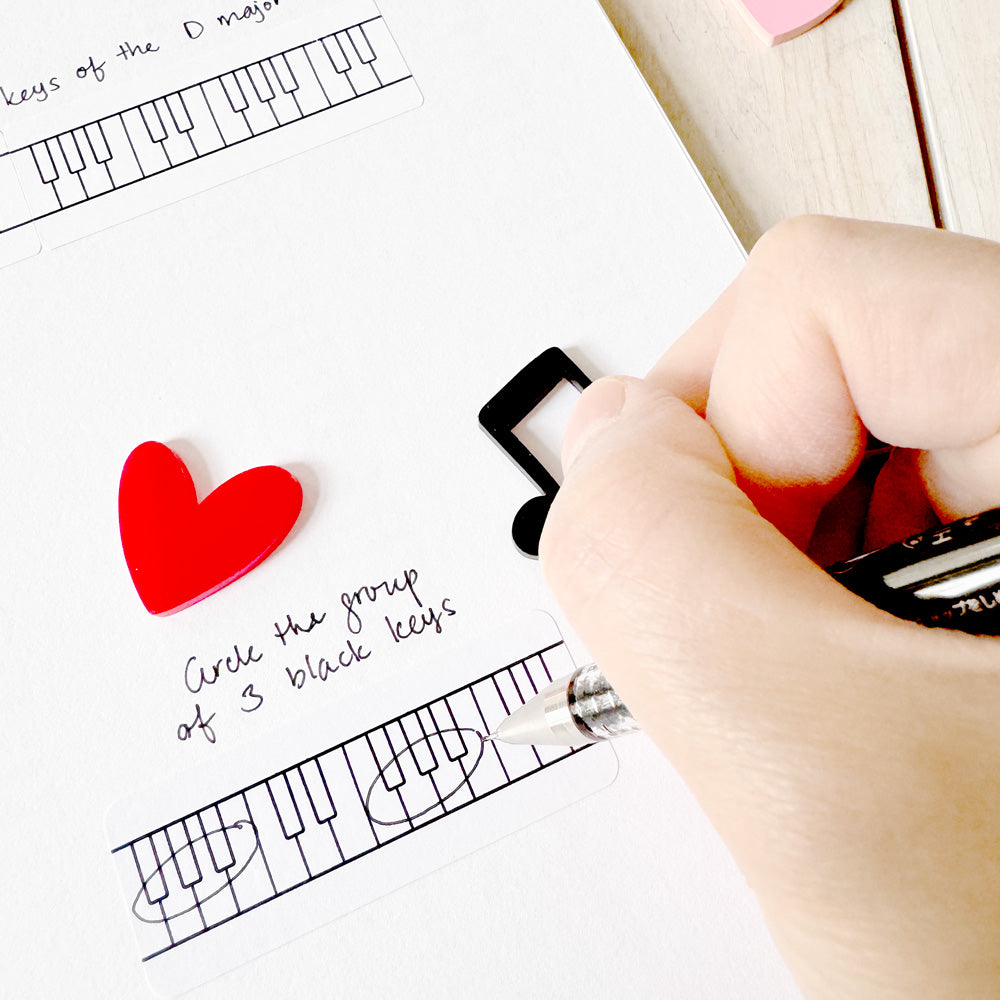 keys of the D major
Circle the group
of 3 black keys